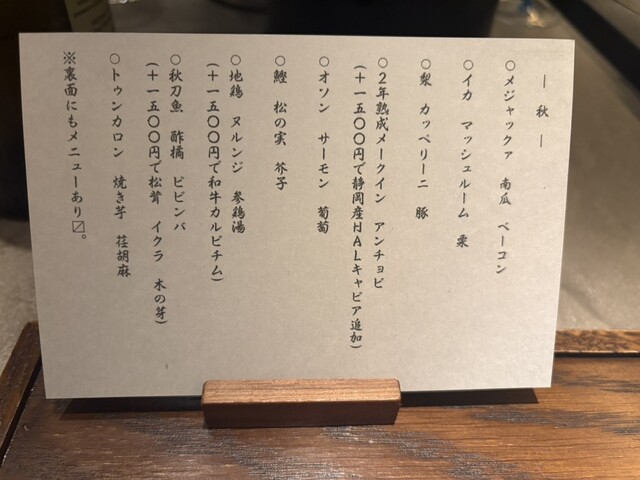 ― 秋 ―
○メジャックァ 南瓜 ベーコン
○イカ マッシュルーム 栗
○梨 カッペリーニ 豚
○２年熟成メークイン アンチョビ
（＋一五〇〇円で静岡産ＨＡＬキャビア追加）
○オソン サーモン 葡萄
○鰹 松の実 芥子
○地鶏 ヌルンジ 参鶏湯
（＋一五〇〇円で和牛カルビチム）
○秋刀魚 酢橘 ビビンバ
（＋一五〇〇円で松茸 イクラ 木の芽）
○トゥンカロン 焼き芋 荏胡麻
※裏面にもメニューあり〼。